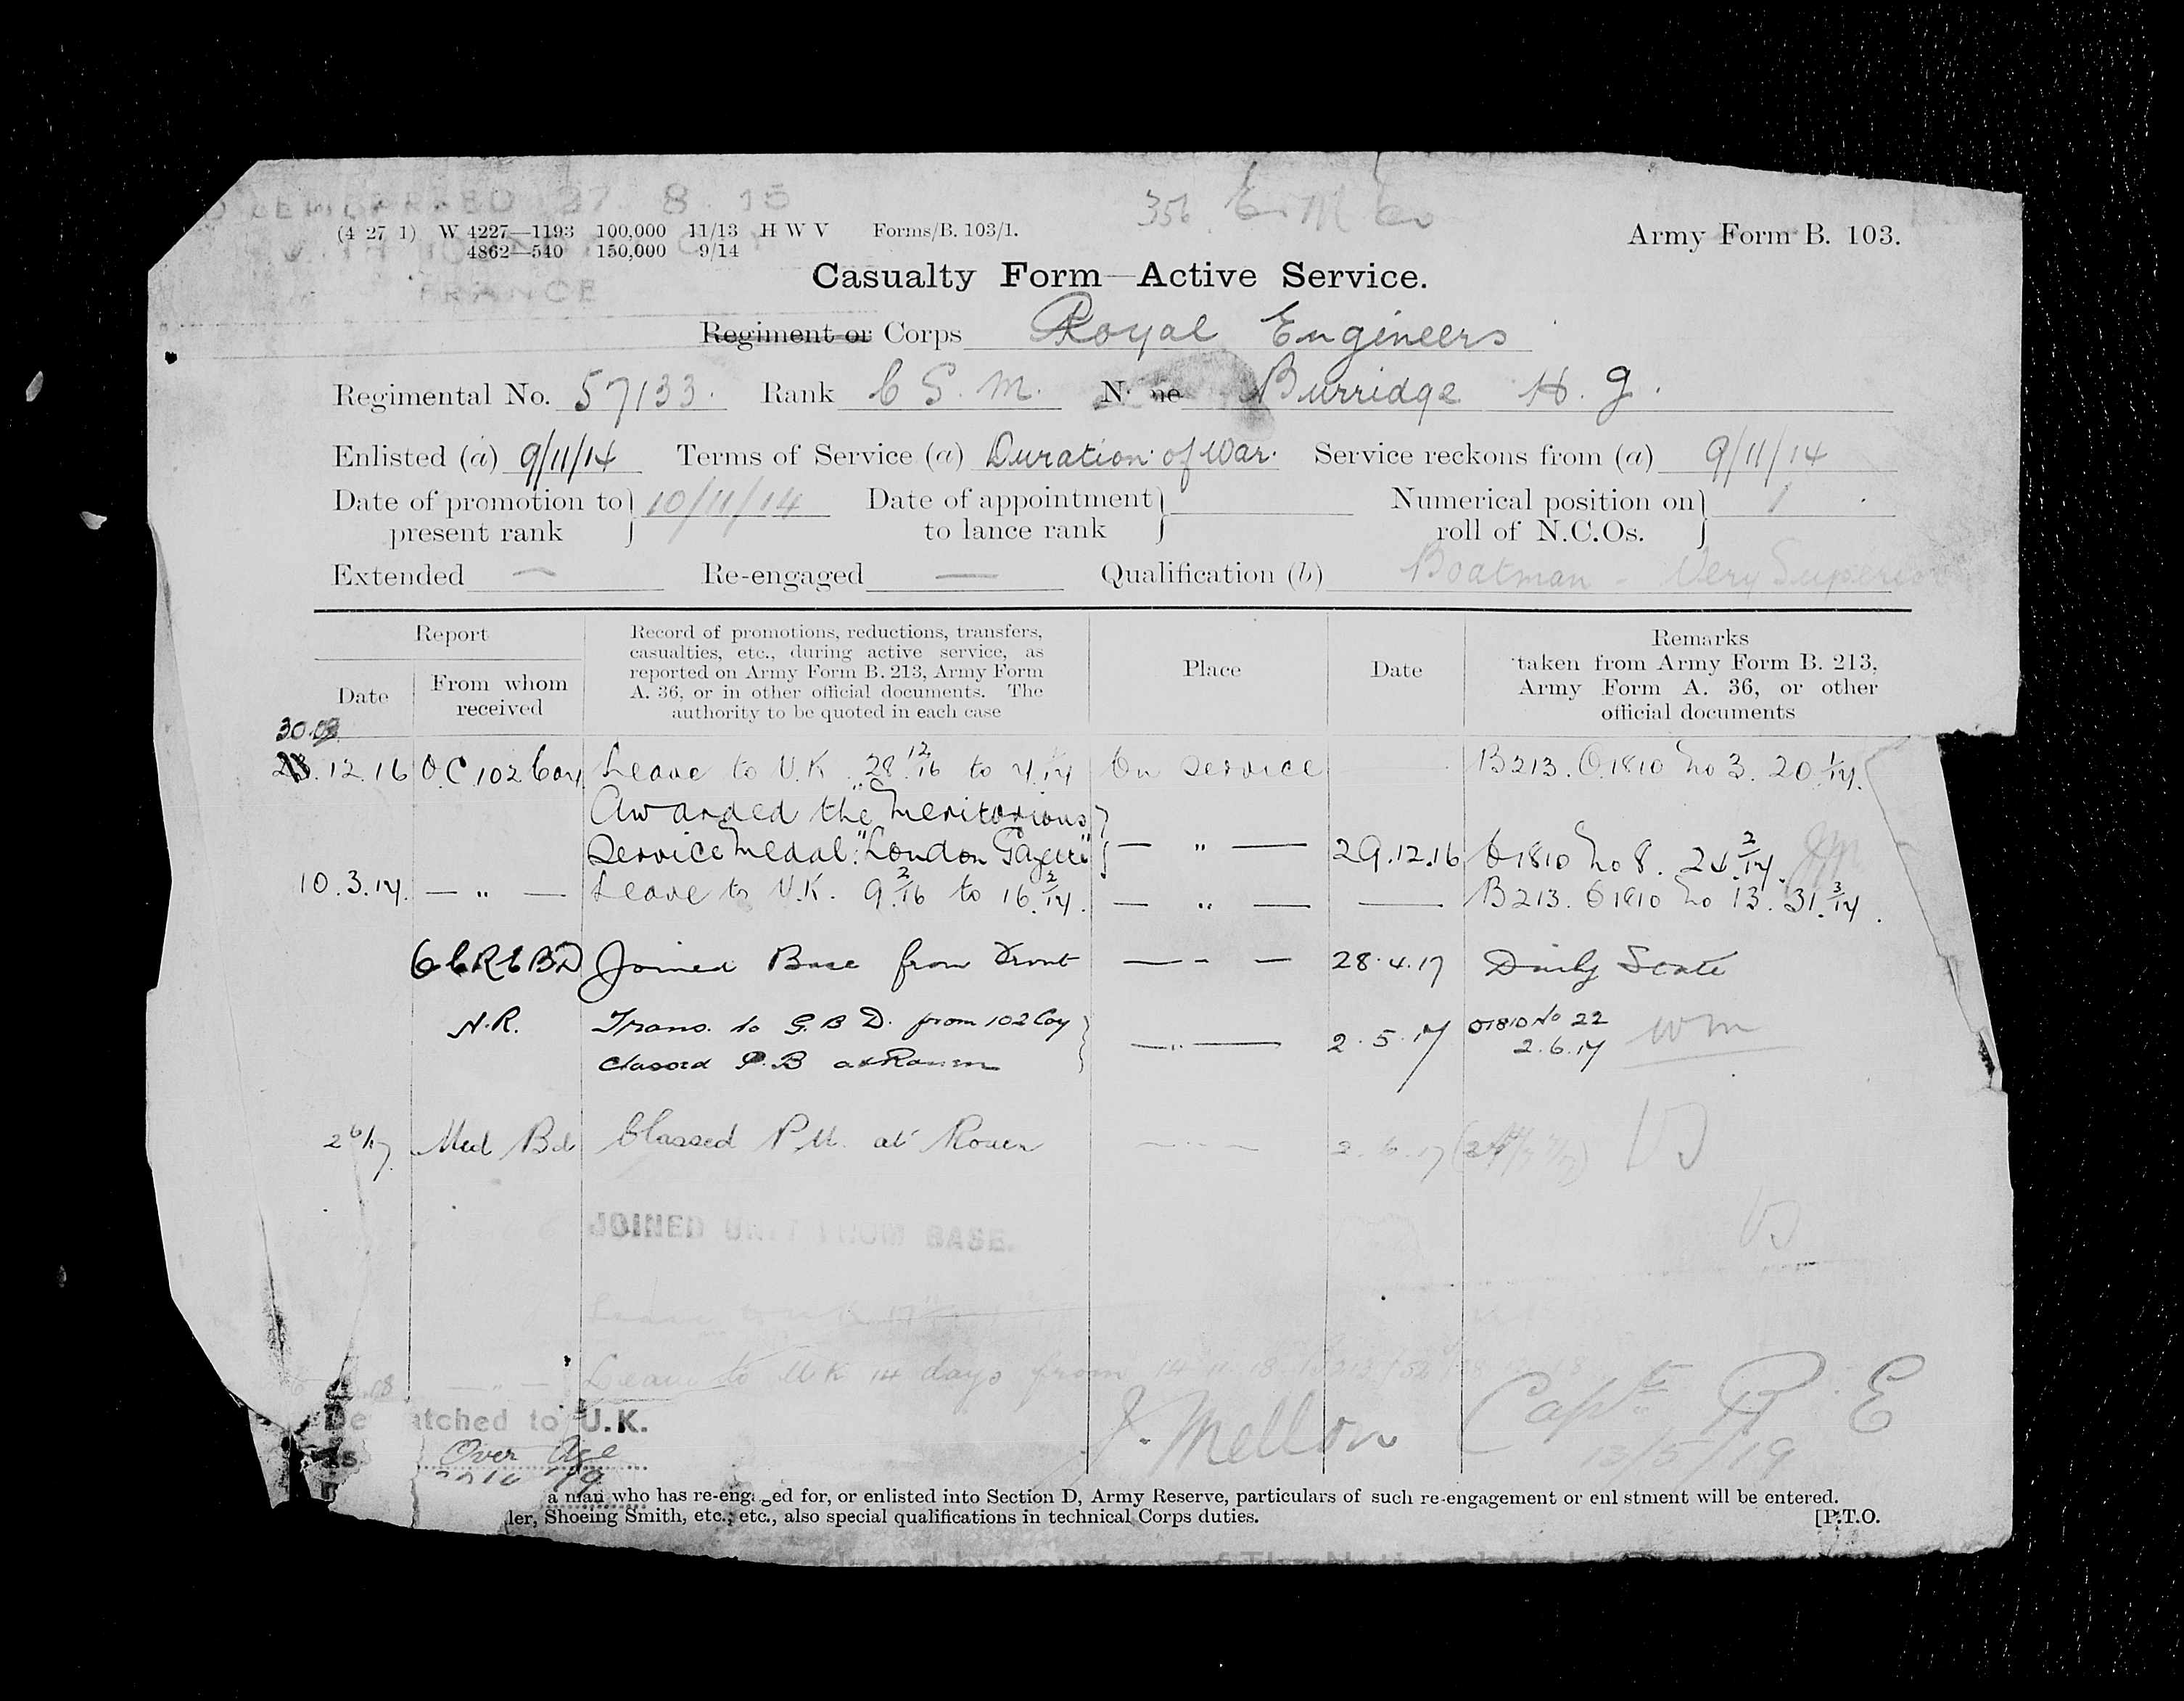 27. 8. 15
356 E. M Co
(4 27 1) W 4227—1193 100,000 11/13 H W V Forms/B. 103/1.
4862—540 150,000 9/14
Army Form B. 103.
FRANCE
Casualty Form—Active Service.
Regiment or Corps Royal Engineers
Regimental No. 57133. Rank C S. M. Burridge H. G.
Enlisted (a) 9/11/14 Terms of Service (a) Duration of War. Service reckons from (a) 9/11/14
Date of promotion to present rank 10/11/14 Date of appointment to lance rank Numerical position on roll of N.C.Os. 1
Extended — Re-engaged — Qualification (b) Boatman - Very Superior
Report
Date
From whom received
Record of promotions, reductions, transfers,
casualties, etc., during active service, as
reported on Army Form B. 213, Army Form
A. 36, or in other official documents. The
authority to be quoted in each case
Place
Date
Remarks
taken from Army Form B. 213,
Army Form A. 36, or other
official documents
.12.16 O.C 102 Coy Leave to U.K. 28.12/16 to On Service B213. O.1810 No 3. 20.1/17.
Awarded the Meritorious
Service Medal. "London Gazette" — " — 29.12.16 O1810 No 8. 2/17.
10.3.17. — " — Leave to U.K. 9.2/16 to 16.2/17. — " — — B213. O1810 No 13. 31.3/17.
G C R E B D Joined Base from Front — - — 28.4.17 Daily State
N.R. Trans. to G. B D. from 102 Coy — " — 2.5.17 O1810 No 22
classed P.B at Rouen 2.6.17 WM
2 6/17 Med Bd Classed P.U. at Rouen 2.6.17
JOINED UNIT FROM BASE.
Leave to U.K. 17
— " — Leave to U K 14 days from 14 11 18
De atched to U.K.
Over Age
J. Mellon Capt R. E
13/5/19
a man who has re-engaged for, or enlisted into Section D, Army Reserve, particulars of such re-engagement or enlistment will be entered.
ler, Shoeing Smith, etc., etc., also special qualifications in technical Corps duties.
[P.T.O.